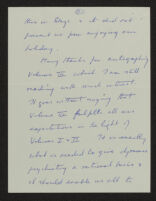 (2)
this in Skye & it did not
prevent us from enjoying our
holiday.
Many thanks for autographing
Volume III which I am still
reading with much interest.
It goes without saying that
Volume III fulfills all our
expectations in the light of
Volumes I & II. It is exactly
what is needed to give dynamic
psychiatry a rational basis &
it should enable us all to